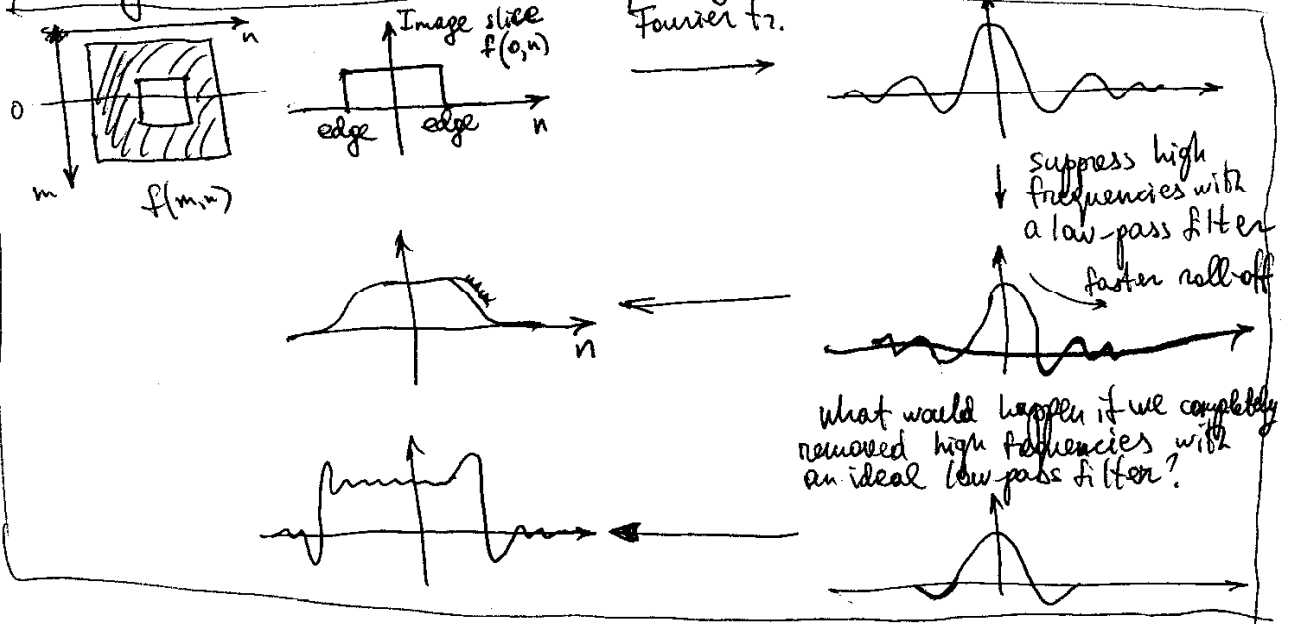 n
Image slice
f(0,n)
Fourier tr.
0
edge
edge
n
m
f(m,n)
suppress high
frequencies with
a low-pass filter
faster roll-off
n
what would happen if we completely
removed high frequencies with
an ideal low-pass filter?